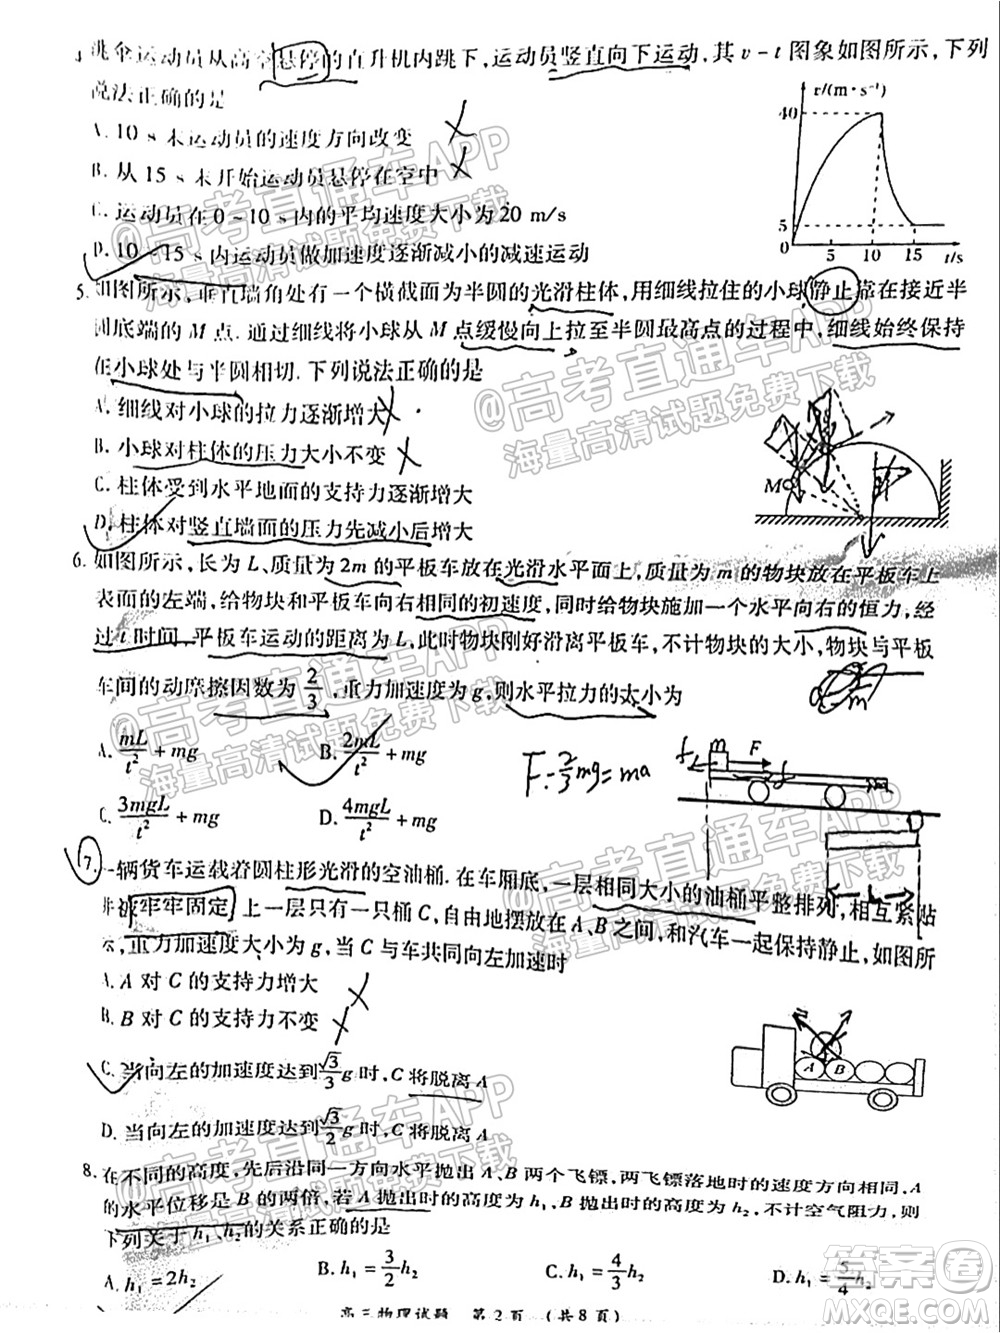 跳伞运动员从高空悬停的直升机内跳下,运动员竖直向下运动.其 v-t 图象如图所示,下列
说法正确的是
A. 10 s 末运动员的速度方向改变
B. 从 15 s 末开始运动员悬停在空中
C. 运动员在 0~10 s 内的平均速度大小为 20 m/s
D. 10~15 s 内运动员做加速度逐渐减小的减速运动
v/(m·s⁻¹)
40
5
0 5 10 15 t/s
5. 如图所示,垂直墙角处有一个横截面为半圆的光滑柱体,用细线拉住的小球静止靠在接近半
圆底端的 M 点.通过细线将小球从 M 点缓慢向上拉至半圆最高点的过程中,细线始终保持
在小球处与半圆相切.下列说法正确的是
A. 细线对小球的拉力逐渐增大
B. 小球对柱体的压力大小不变
C. 柱体受到水平地面的支持力逐渐增大
D. 柱体对竖直墙面的压力先减小后增大
M
6. 如图所示,长为 L、质量为 2m 的平板车放在光滑水平面上,质量为 m 的物块放在平板车上
表面的左端,给物块和平板车向右相同的初速度,同时给物块施加一个水平向右的恒力,经
过 t 时间,平板车运动的距离为 L,此时物块刚好滑离平板车,不计物块的大小,物块与平板
车间的动摩擦因数为 2/3,重力加速度为 g,则水平拉力的大小为
A. mL/t² + mg B. 2mL/t² + mg
C. 3mgL/t² + mg D. 4mgL/t² + mg
F - 2/3 mg = ma
m F f
f
L
7. 一辆货车运载着圆柱形光滑的空油桶.在车厢底,一层相同大小的油桶平整排列,相互紧贴
并被牢牢固定,上一层只有一只桶 C,自由地摆放在 A、B 之间,和汽车一起保持静止,如图所
示,重力加速度大小为 g,当 C 与车共同向左加速时
A. A 对 C 的支持力增大
B. B 对 C 的支持力不变
C. 当向左的加速度达到 √3/3 g 时,C 将脱离 A
D. 当向左的加速度达到 √3/2 g 时,C 将脱离 A
A B
8. 在不同的高度,先后沿同一方向水平抛出 A、B 两个飞镖,两飞镖落地时的速度方向相同,A
的水平位移是 B 的两倍,若 A 抛出时的高度为 h₁,B 抛出时的高度为 h₂,不计空气阻力,则
下列关于 h₁、h₂ 的关系正确的是
A. h₁=2h₂ B. h₁=3/2 h₂ C. h₁=4/3 h₂ D. h₁=5/4 h₂
高三物理试题 第 2 页 (共 8 页)
@高考直通车APP
海量高清试题免费下载
@高考直通车APP
海量高清试题免费下载
@高考直通车APP
海量高清试题免费下载
@高考直通车APP
海量高清试题免费下载
@高考直通车APP
海量高清试题免费下载
答案圈
MXQE.COM